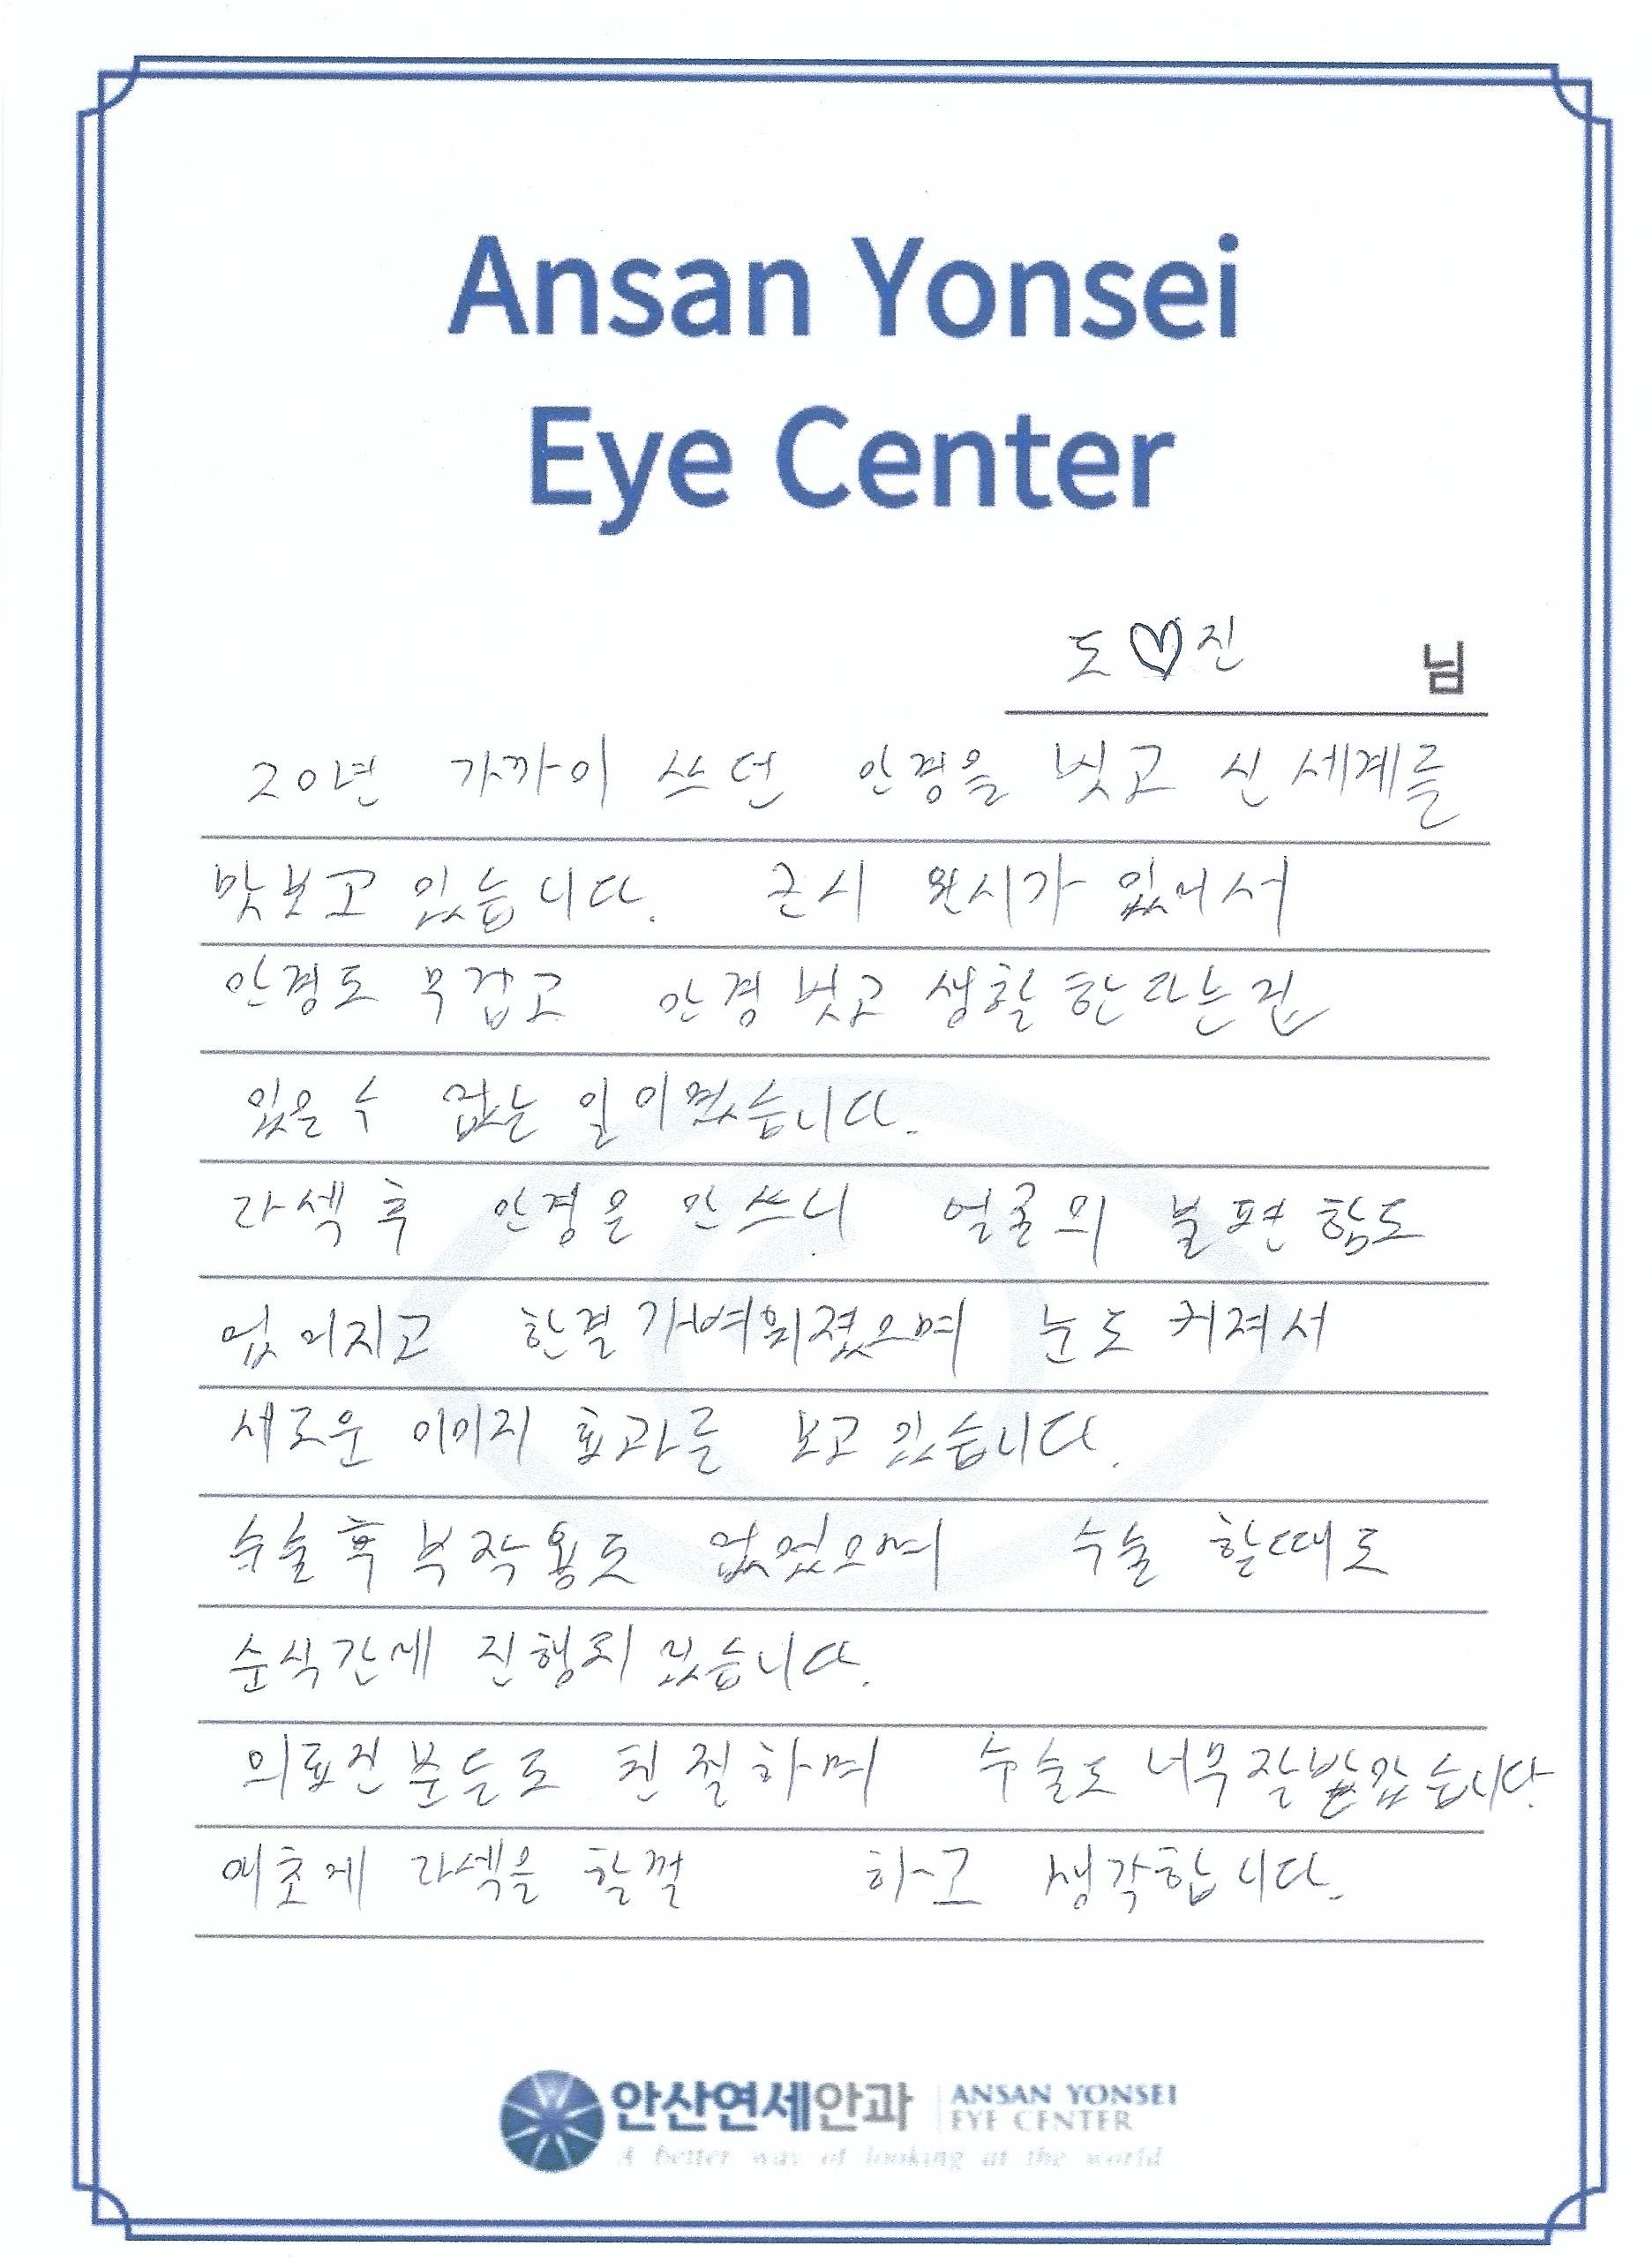 Ansan Yonsei
Eye Center
도♡진 님
20년 가까이 쓰던 안경을 벗고 신세계를
맛보고 있습니다. 근시 완시가 있어서
안경도 무겁고 안경 벗고 생활한다는건
있을 수 없는 일이였습니다.
라섹후 안경을 안쓰니 얼굴의 불편함도
없어지고 한결 가벼워졌으며 눈도 커져서
새로운 이미지 효과를 보고있습니다.
수술후 부작용도 없었으며 수술 할때도
순식간에 진행되었습니다.
의료진분들도 친절하며 수술도 너무잘받았습니다.
애초에 라섹을 할껄 하고 생각합니다.
안산연세안과 ANSAN YONSEI
EYE CENTER
A better way of looking at the world